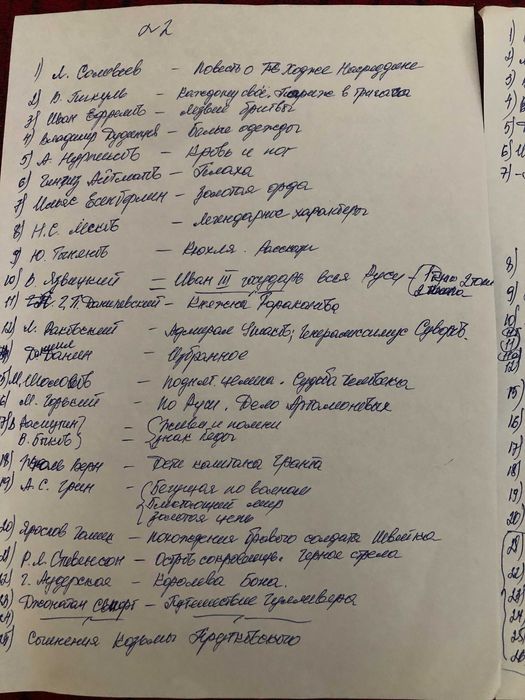 №2
1) Л. Соловьев – Повесть о Ходже Насреддине
2) В. Пикуль – Каждому своё. Париж в три часа
3) Иван Ефремов – Лезвие бритвы
4) Владимир Дудинцев – Белые одежды
5) А. Нурпеисов – Кровь и пот
6) Чингиз Айтматов – Плаха
7) Ильяс Есенберлин – Золотая орда
8) Н.С. Лесков – Легендарные характеры
9) Ю. Тынянов – Кюхля. Рассказы
10) В. Язвицкий = Иван III государь всея Руси –
11) Г.П. Данилевский – Княжна Тараканова
12) Л. Раковский – Адмирал Ушаков; Генералиссимус Суворов.
Даниил Гранин – Избранное
15) М. Шолохов – Поднятая целина. Судьба человека
16) М. Горький – По Руси. Дело Артамоновых
17) В. Распутин } = { Живи и помни
В. Быков } = { Знак беды
18) Жюль Верн – Дети капитана Гранта
19) А.С. Грин – { Бегущая по волнам
Блистающий мир
Золотая цепь
20) Ярослав Гашек – Похождения бравого солдата Швейка
21) Р.Л. Стивенсон – Остров сокровищ. Черная стрела
22) Г. Аудерская – Королева Бона.
23) Джонатан Свифт – Путешествие Гулливера
24)
25) Сочинения Козьмы Пруткова
1)
2)
3)
4)
5)
6)
7)
8)
9)
10)
11)
12)
15)
16)
17)
18)
19)
20)
21)
22)
23)
24)
25)
26